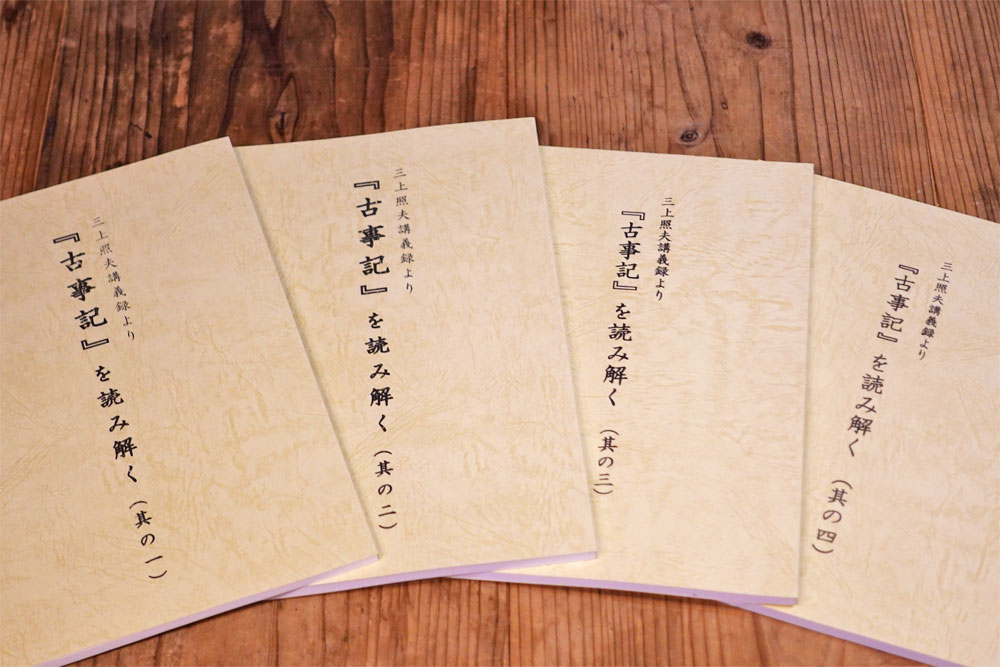 三上照夫講義録より
『古事記』を読み解く(其の一)
三上照夫講義録より
『古事記』を読み解く(其の二)
三上照夫講義録より
『古事記』を読み解く(其の三)
三上照夫講義録より
『古事記』を読み解く(其の四)